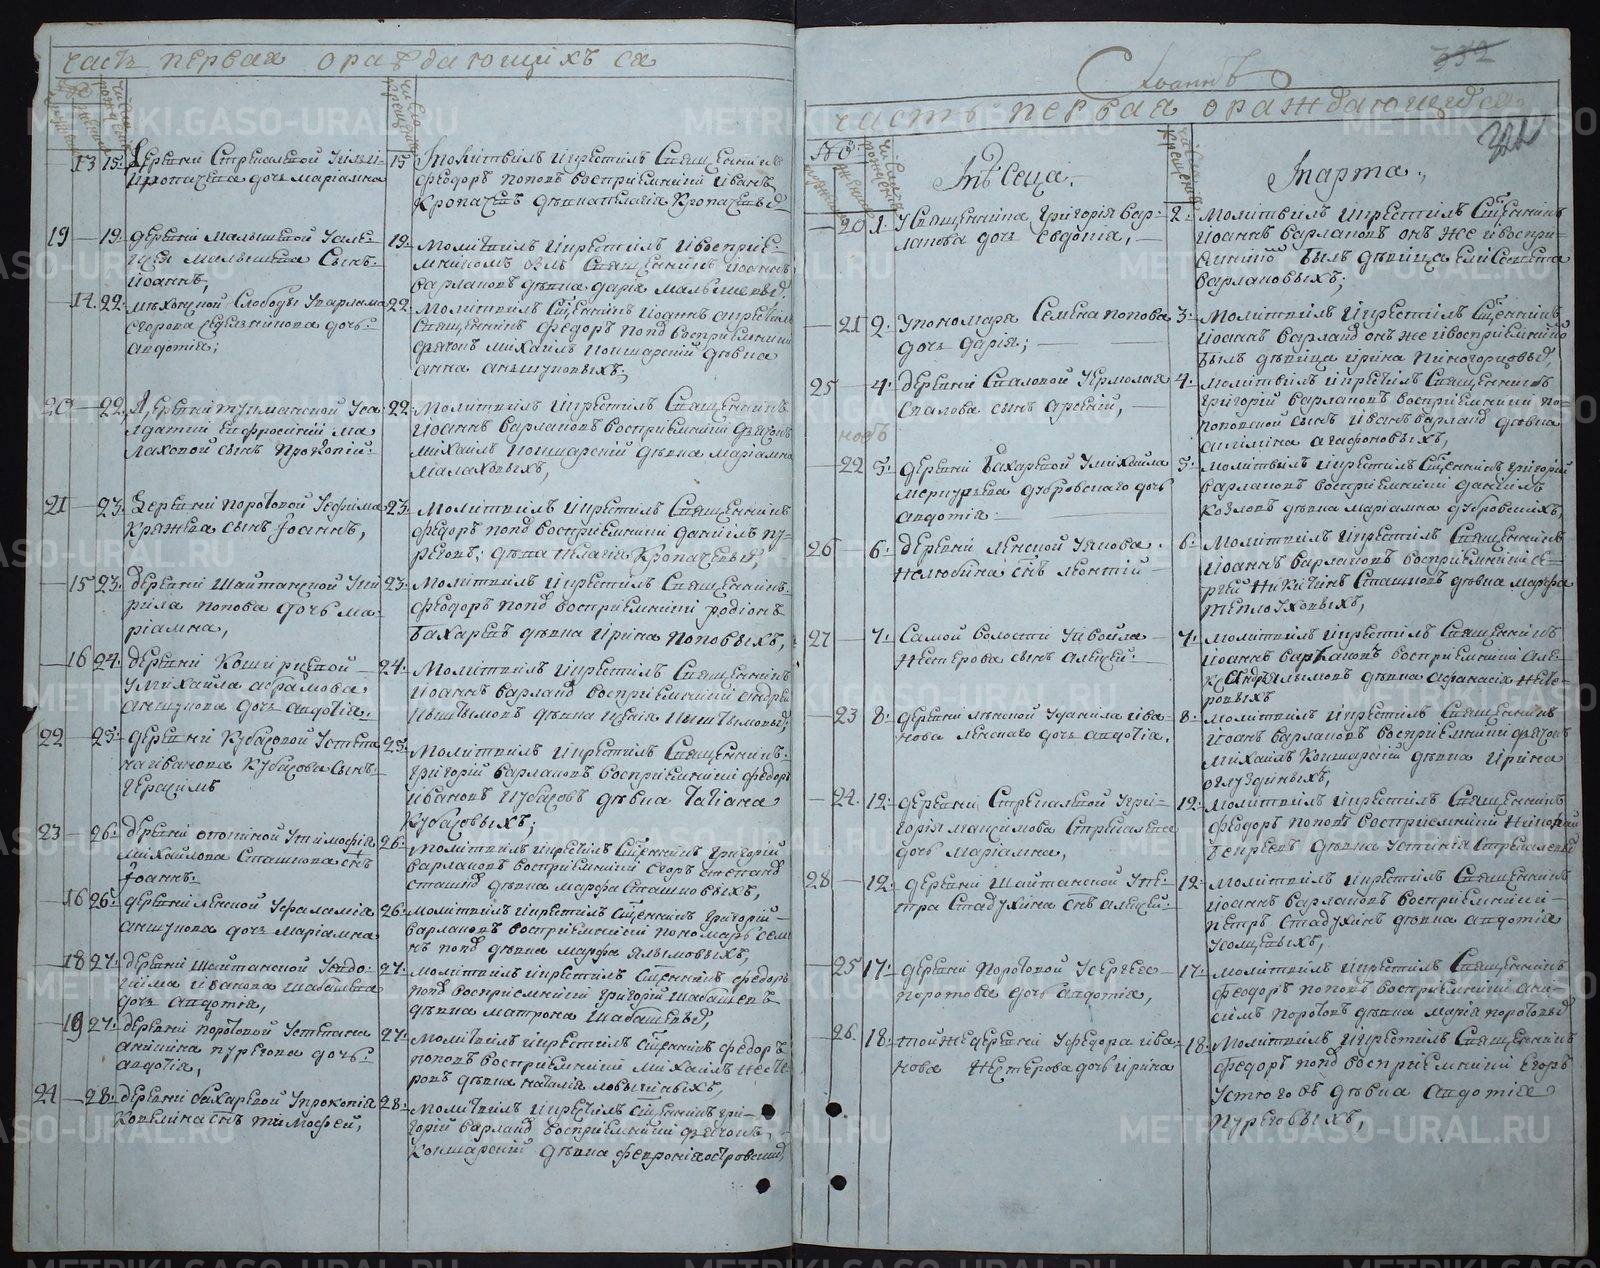 часть первая ораждающихъ ся
13 15: деревни Стрекаловой
Кропачева дочь маріамна
15 молитвилъ икрестилъ Священникъ
федоръ поповъ воспріемникъ иванъ
Кропачевъ девка пелагія Кропачевыхъ
19 19: деревни малышевой
малышева сынъ
іоаннъ,
19: молитвилъ икрестилъ ивоспріе-
мникомъ былъ Священникъ іоаннъ
варлаковъ девка дарія малышевыхъ,
14. 22: Слободы уварлама
егорова дочь
авдотія;
22: молитвилъ Священникъ іоаннъ акрестилъ
Священникъ федоръ попов воспріемникъ
дьячокъ михаилъ Кокшарскій девка
анна аншуковыхъ;
20 22. деревни тукманской
Ефросиніи ма
лаховой сынъ прокопій:
22: молитвилъ икрестилъ Священникъ
іоаннъ варлаковъ воспріемникъ дьячокъ
михаилъ Кокшарскій девка маріамна
малаховыхъ,
21 23. деревни поротовой уефима
Кряжева сынъ іоаннъ,
23. молитвилъ икрестилъ Священникъ
федоръ попов воспріемникъ даниилъ пу-
реговъ; девка пелагія Кропачевыхъ,
15 23. деревни шайтанской уки
рила попова дочь ма-
ріамна,
23: молитвилъ икрестилъ Священникъ
федоръ попов воспріемникъ родіонъ
Бахаревъ девка ирина поповыхъ,
16 24: деревни
умихаила абрамова
аншукова дочь авдотія.
24. молитвилъ икрестилъ Священникъ
іоаннъ варлаков воспріемникъ андрей
Кыштымовъ девка Кыштымовыхъ,
22 25: деревни Кубасовой устепа
на иванова Кубасова сынъ
герасимъ
25: молитвилъ икрестилъ Священникъ
григорій варлаковъ воспріемникъ федоръ
ивановъ Кубасовъ девка татіана
Кубасовыхъ;
23 26: деревни утимофея
михаилова Сташкова снъ
іоаннъ:
26: молитвилъ икрестилъ Священникъ григорій
варлаковъ воспріемникъ егоръ степанов
сташков девка марфа сташковыхъ,
16 26: деревни ленской
аншукова дочь маріамна
26: молитвилъ икрестилъ Священникъ григорій
варлаковъ воспріемникъ пономарь семе
нъ попов девка марфа ялымовыхъ,
18 27: деревни шайтанской уевдо-
кима иванова шабашева
дочь авдотія,
27. молитвилъ икрестилъ Священникъ федоръ
попов воспріемникъ григорій шабашевъ
девка матрона шабашевых,
19 27: деревни поротовой устепана
аникина пурегова дочь
авдотія,
27. молитвилъ икрестилъ Священникъ федоръ
поповъ воспріемникъ михаилъ несте
ровъ девка наталія
24 28: деревни бахаревой упрокопія
Ковелина снъ тимофей,
28: молитвилъ икрестилъ Священникъ гри-
горій варлаков воспріемникъ дьячокъ
Кокшарскій девка февронія островскихъ
Іоаннъ
352
часть первая ораждающихся
321
Мѣсеца. Марта.,
20 1: уСвященника григорія вар-
лакова дочь евдокія,
2: молитвилъ икрестилъ Священникъ
іоаннъ варлаковъ онъ же ивоспріе-
емникъ былъ девица елисавета
варлаковыхъ;
21 2: упономаря Семена попова
дочь дарія;
3: молитвилъ икрестилъ Священникъ
іоаннъ варлаков онъ же ивоспріемникъ
былъ девица ирина
25 4: деревни Спаловой уермолая
Спалова сынъ арсений,
4. молитвилъ икрестилъ Священникъ
григорій варлаковъ воспріемникъ по-
поповской сынъ иванъ варлаков девка
акилина агафоновыхъ,
22 5: деревни Бахаревой умихаила
меркурьева дубровскаго дочь
авдотія
5: молитвилъ икрестилъ Священникъ григорій
варлаковъ воспріемникъ даниилъ
Козловъ девка маріамна дубровскихъ,
26 6: деревни ленской уякова
нелюбина снъ леонтій
6: молитвилъ икрестилъ Священникъ
іоаннъ варлаковъ воспріемникъ се-
ргей никитинъ Сташковъ девка марфа
теплоуховыхъ,
27 7: Самой волости
нестерова сынъ алексей:
7: молитвилъ икрестилъ Священникъ
іоаннъ варлаковъ воспріемникъ але-
ксандръ ялымовъ девка афанасія несте
ровыхъ
23 8: деревни ленской уданила ива-
нова ленскаго дочь авдотія.
8: молитвилъ икрестилъ Священникъ
іоаннъ варлаковъ воспріемникъ дьячокъ
михаилъ Кокшарскій девка ирина
24. 12: деревни Стрекаловой угри-
горія максимова Стрекалова
дочь маріамна,
12: молитвилъ икрестилъ Священникъ
федоръ поповъ воспріемникъ никифоръ
девка устинія Стрекаловых
28 12: деревни шайтанской упе-
тра Стадухина снъ алексей:
12: молитвилъ икрестилъ Священникъ
іоаннъ варлаковъ воспріемникъ
петръ Стадухинъ девка авдотія
25 17: деревни поротовой усергея
поротова дочь авдотія,
17: молитвилъ икрестилъ Священникъ
федоръ поповъ воспріемникъ ани-
симъ поротовъ девка марія поротовых
26. 18: тойже деревни уфедора ива-
нова нестерова дочь ирина
18: молитвилъ икрестилъ Священникъ
федоръ попов воспріемникъ егоръ
устюговъ девка авдотія
пуреговыхъ,
METRIKI.GASO-URAL.RU